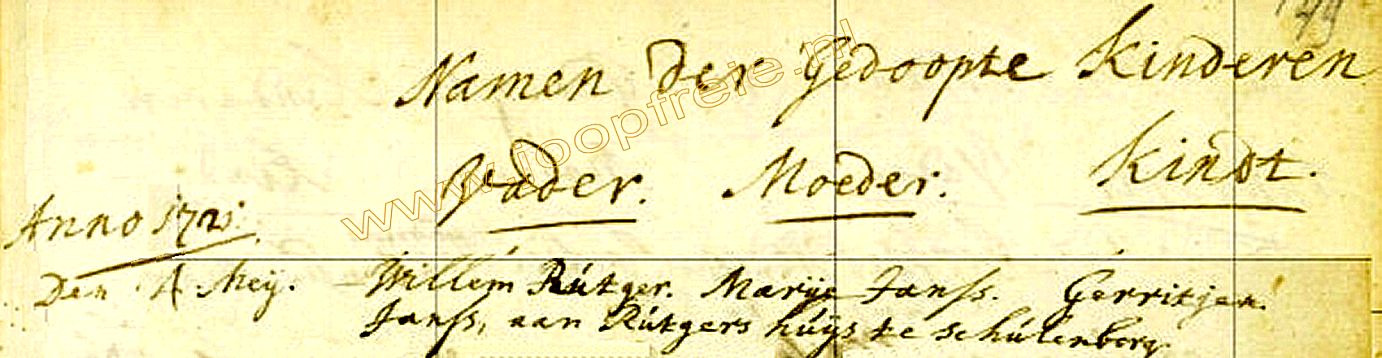 49
Namen der Gedoopte Kinderen
Vader. Moeder. Kindt.
Anno 1721.
Den 4 Meij. Willem Rútger. Marije Janss. Gerritjen.
Janss, aan Rútgers húijs te Schúlenborg.
www.joopfreie.nl